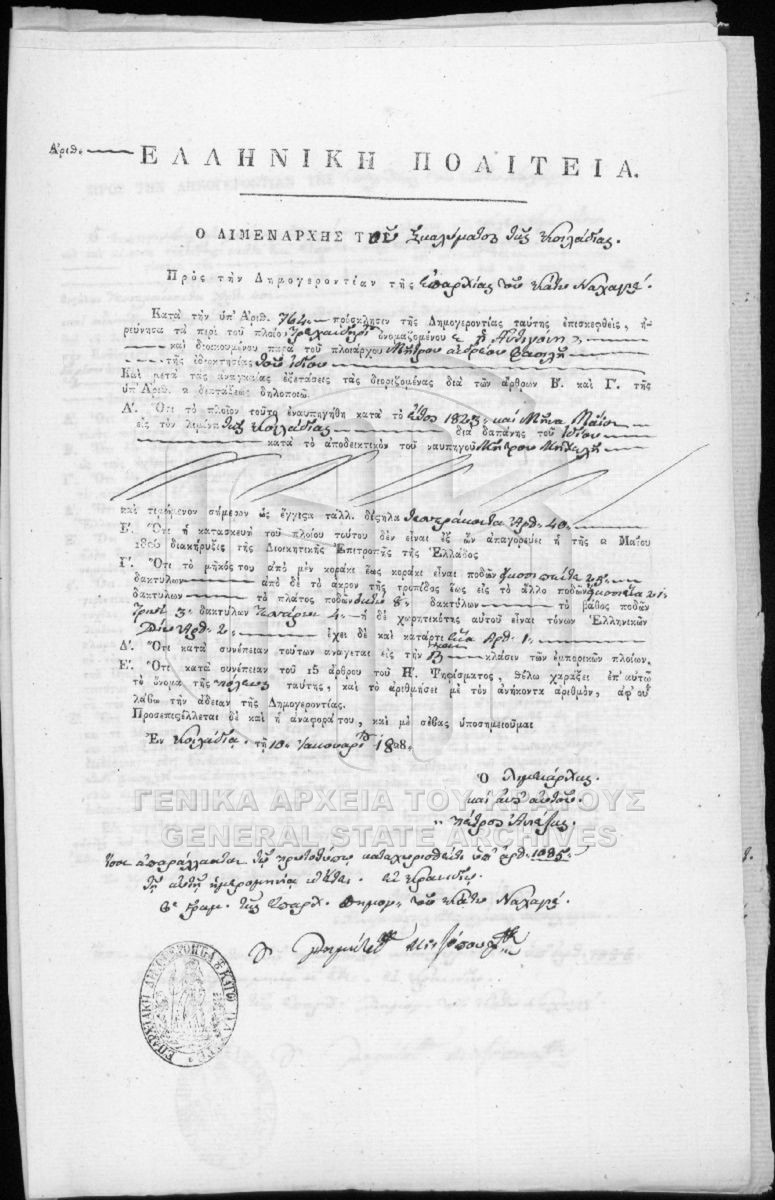 Ἀριθ.
ΕΛΛΗΝΙΚΗ ΠΟΛΙΤΕΙΑ.
Ο ΛΙΜΕΝΑΡΧΗΣ ΤΟῦ τῆς Κοιλάδας.
Πρὸς τὴν Δημογεροντίαν τῆς ἐπαρχίας τοῦ Κάτω Ναχαγέ.
Κατὰ τὴν ὑπ' Ἀριθ. 764 πρόσκλησιν τῆς Δημογεροντίας ταύτης ἐπισκεφθεὶς, ἠ-
ρεύνησα τὰ περὶ τοῦ πλοίου τρεχαντήρι ὀνομαζομένου
καὶ διοικουμένου παρὰ τοῦ πλοιάρχου Μήτρου
τῆς ἰδιοκτησίας τοῦ ἰδίου
Καὶ μετὰ τὰς ἀναγκαίας ἐξετάσεις τὰς διοριζομένας διὰ τῶν ἄρθρων Β. καὶ Γ. τῆς
ὑπ' Ἀριθ. 2 διατάξεως δηλοποιῶ.
Α΄. Ὅτι τὸ πλοῖον τοῦτο ἐναυπηγήθη κατὰ τὸ ἔτος 1823 καὶ Μῆνα Μάϊον
εἰς τὸν λιμένα τῆς Κοιλάδας διὰ δαπάνης τοῦ ἰδίου
κατὰ τὸ ἀποδεικτικὸν τοῦ ναυπηγοῦ Μήτρου Μιχαλῆ
καὶ τιμώμενον σήμερον ὡς ἔγγιστα ταλλ. δίστηλα τεσσαράκοντα Ἀρθ. 40.
Β΄. Ὅτι ἡ κατασκευὴ τοῦ πλοίου τούτου δὲν εἶναι ἐξ ὧν ἀπαγορεύει ἡ τῆς 2 Μαΐου
1826 διακήρυξις τῆς Διοικητικῆς Ἐπιτροπῆς τῆς Ἑλλάδος
Γ΄. Ὅτι τὸ μῆκός του ἀπὸ μὲν κοράκι ἕως κοράκι εἶναι ποδῶν εἴκοσι πέντε 25
δακτύλων ἀπὸ δὲ τὸ ἄκρον τῆς τρόπιδος ἕως εἰς τὸ ἄλλο ποδῶν εἴκοσι ἕνα 21
δακτύλων τὸ πλάτος ποδῶν ὀκτὼ 8 δακτύλων τὸ βάθος ποδῶν
τρεῖς 3 δακτύλων τεσσάρων 4 ἡ δὲ χωρητικότης αὐτοῦ εἶναι τόνων Ἑλληνικῶν
δύω Ἀρθ. 2 ἔχει δὲ καὶ κατάρτι ἕνα Ἀρθ. 1
Δ΄. Ὅτι κατὰ συνέπειαν τούτων ἀνάγεται εἰς τὴν Β κλάσιν τῶν ἐμπορικῶν πλοίων.
Ε΄. Ὅτι κατὰ συνέπειαν τοῦ 15 ἄρθρου τοῦ Η΄. Ψηφίσματος, θέλω χαράξει ἐπ' αὐτῷ
τὸ ὄνομα τῆς πόλεως ταύτης, καὶ τὸ ἀριθμήσει μὲ τὸν ἀνήκοντα ἀριθμὸν, ἀφ' οὗ
λάβω τὴν ἄδειαν τῆς Δημογεροντίας.
Προσεπιστέλλεται δὲ καὶ ἡ ἀναφορά του, καὶ μὲ σέβας ὑποσημειοῦμαι
Ἐν Κοιλάδᾳ. τῇ 10 Ἰανουαρίου 1828.
Ὁ Λιμενάρχης.
καὶ ἀντ' αὐτοῦ.
Πέτρος
ΓΕΝΙΚΑ ΑΡΧΕΙΑ ΤΟΥ ΚΡΑΤΟΥΣ
GENERAL STATE ARCHIVES
Ἴσον ἀπαράλλακτον τῷ πρωτοτύπῳ καταχωρισθέντι ὑπ' ἀρθ. 1085
τῇ αὐτῇ ἡμερομηνίᾳ Ἐν Κρανιδίῳ.
ὁ Γραμ. τῆς Ἐπαρχ. Δημογ. τοῦ Κάτω Ναχαγέ.
ΕΠΑΡΧΙΑΚΗ ΔΗΜΟΓΕΡΟΝΤΙΑ ΚΑΤΩ ΝΑΧΑΓΕ